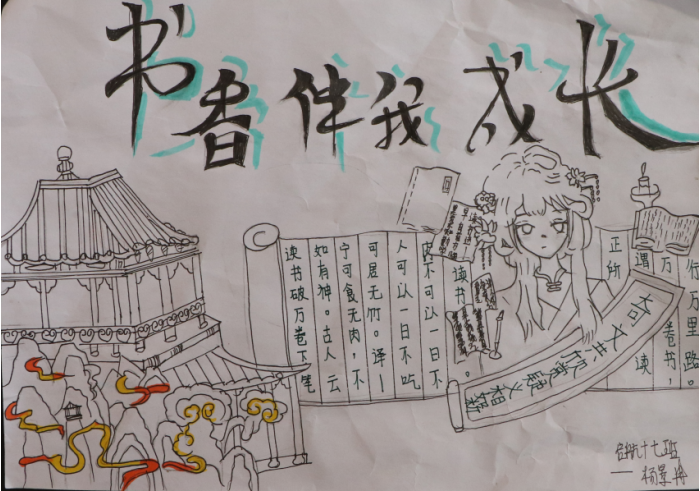 书香伴我成长
读书破万卷下笔
如有神。古人云
宁可食无肉，不
可居无竹。译—
人可以一日不吃
肉不可以一日不
读书。
正所
谓读
万卷书，
行万里路。
奇文共欣赏疑义相析
启航十七班